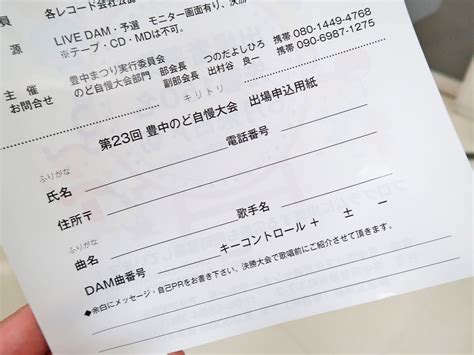 員 各レコード会社公認
源 LIVE DAM・予選 モニター画面有り、決勝
※テープ・CD・MDは不可。
主催 豊中まつり実行委員会
お問合せ のど自慢大会部門 部会長 つのだよしひろ 携帯 080-1449-4768
副部会長 出村谷 良一 携帯 090-6987-1275
キリトリ
第23回 豊中のど自慢大会 出場申込用紙
ふりがな
氏名 電話番号
住所〒
ふりがな
曲名 歌手名
DAM曲番号 キーコントロール + ± −
◆余白にメッセージ・自己PRをお書き下さい。決勝大会で歌唱前にご紹介させて頂きます。